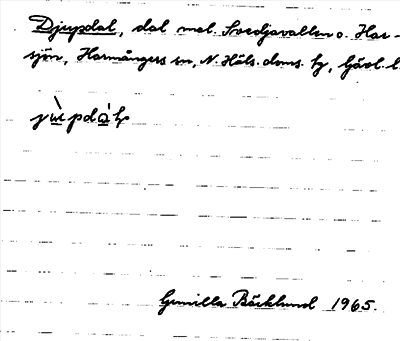 Djupdal, dal mel. Svedjavallen o. Har-
sjön, Harmångers sn, N. Häls. doms. hg, Gävl. l.
Gunilla Bäcklund 1965.